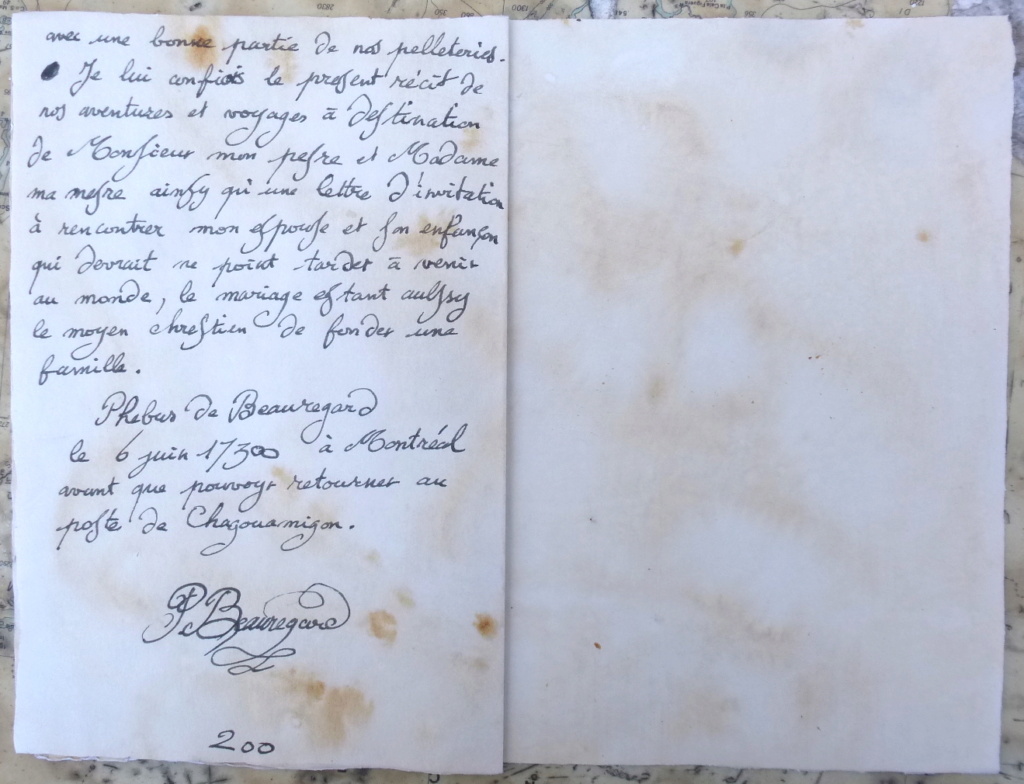 avec une bonne partie de nos pelleteries.
Je lui confiois le preſent récit de
nos aventures et voyages à deſtination
de Monſieur mon peſre et Madame
ma meſre ainſy qu'une lettre d'invitation
à rencontrer mon eſpouſe et ſon enfançon
qui devrait ne point tarder à venir
au monde, le mariage eſtant auſſy
le moyen chreſtien de fonder une
famille.
Phebus de Beauregard
le 6 juin 1730 à Montréal
avant que pouvoyr retourner au
poſte de Chagouamigon.
P. Beauregard
200